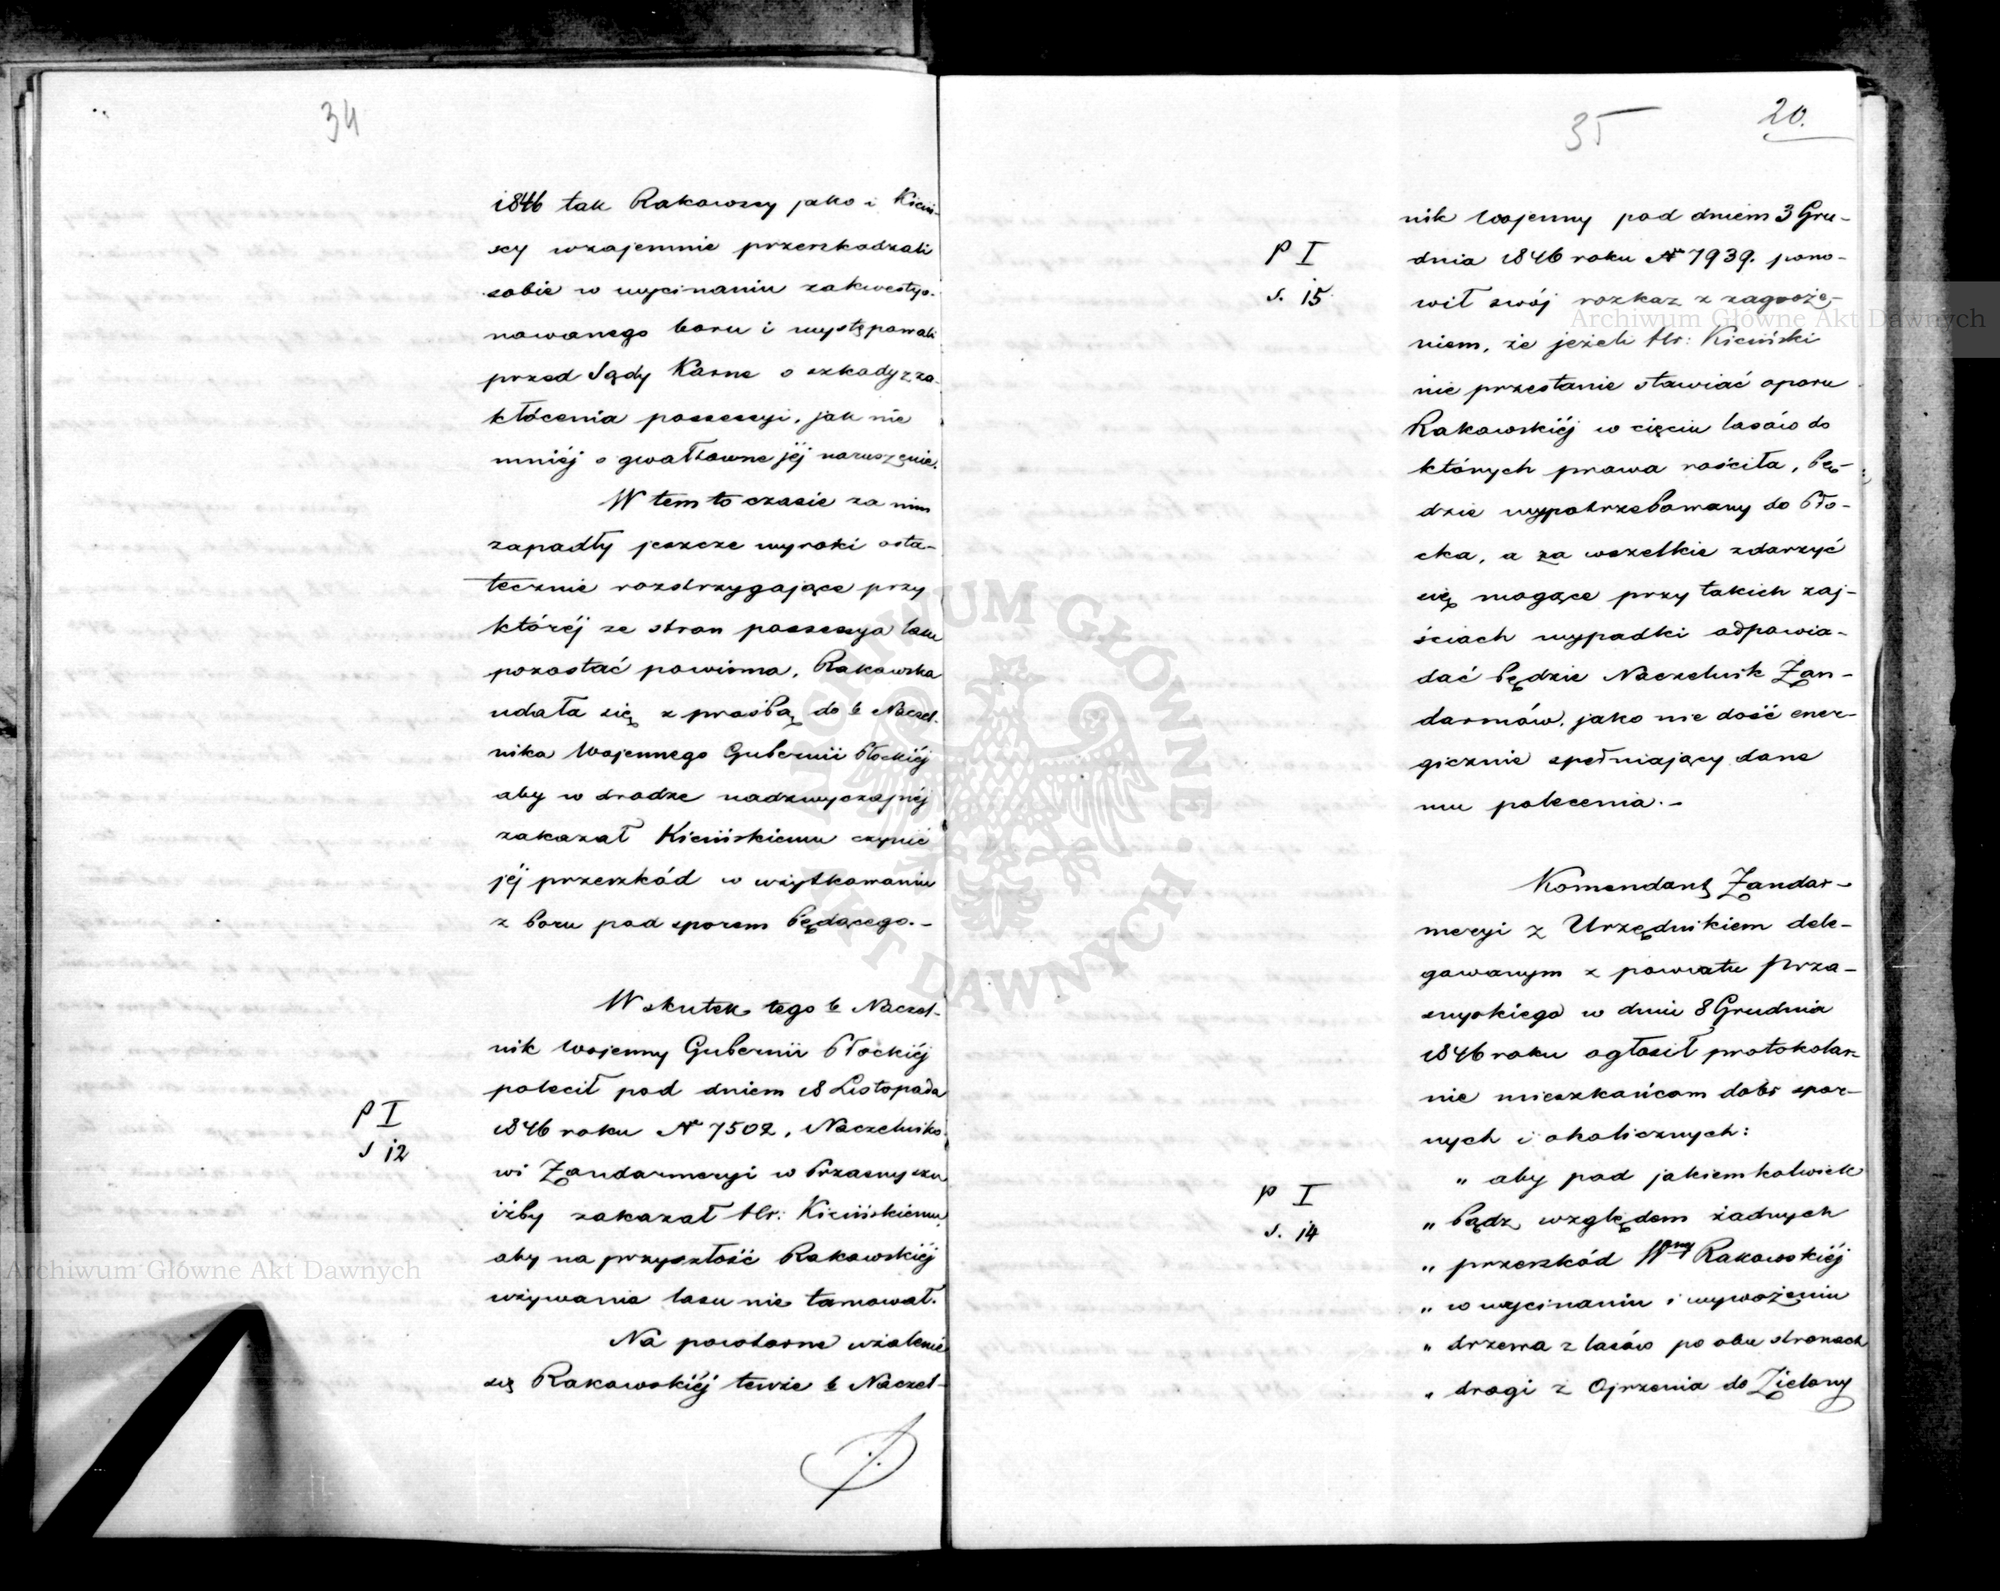 34
1846 tak Rakowscy jako i Kiciń-
scy wzajemnie przeszkadzali
sobie w wycinaniu zakwestyo-
nowanego boru i występowali
przed Sądy Karne o szkody z za-
kłócenia possessyi, jak nie
mniéj o gwałtowne jéj naruszenie.
W tem to czasie za nim
zapadły jeszcze wyroki osta-
tecznie rozstrzygające przy
któréj ze stron possessya lasu
pozostać powinna, Rakowska
udała się z prośbą do b Naczel-
nika Wojennego Gubernii Płockiéj
aby w drodze nadzwyczajnéj
zakazał Kicińskiemu czynić
jéj przeszkód w użytkowaniu
z boru pod sporem będącego.-
W skutek tego b Naczel-
nik Wojenny Gubernii Płockiéj
polecił pod dniem 18 Listopada
P I
s 12
1846 roku № 7502, Naczelniko-
wi Żandarmeryi w Przasnyszu
iżby zakazał Hr: Kicińskiemu,
aby na przyszłość Rakowskiéj
używania lasu nie tamował.
Na powtórne użalenie
się Rakowskiéj tenże b Naczel-
35
20.
nik Wojenny pod dniem 3 Gru-
P I
s. 15
dnia 1846 roku № 7939. pono-
wił swój rozkaz z zagroże-
niem, że jeżeli Hr: Kiciński
nie przestanie stawiać oporu
Rakowskiéj w cięciu lasów do
których prawa rościła, bę-
dzie wypotrzebowany do Pło-
cka, a za wszelkie zdarzyć
się mogące przy takich zaj-
ściach wypadki odpowia-
dać będzie Naczelnik Żan-
darmów, jako nie dość ener-
gicznie spełniający dane
mu polecenia.-
Komendant Żandar-
meryi z Urzędnikiem dele-
gowanym z powiatu Prza-
snyskiego w dniu 8 Grudnia
1846 roku ogłosił protokolar-
nie mieszkańcom dóbr spor-
nych i okolicznych:
P I
s. 14
„ aby pod jakiemkolwiek
„ bądź względem żadnych
„ przeszkód Wny Rakowskiéj
„ w wycinaniu i wywożeniu
„ drzewa z lasów po obu stronach
„ drogi z Ojrzenia do Zielony
Archiwum Główne Akt Dawnych
Archiwum Główne Akt Dawnych
ARCHIWUM GŁÓWNE AKT DAWNYCH